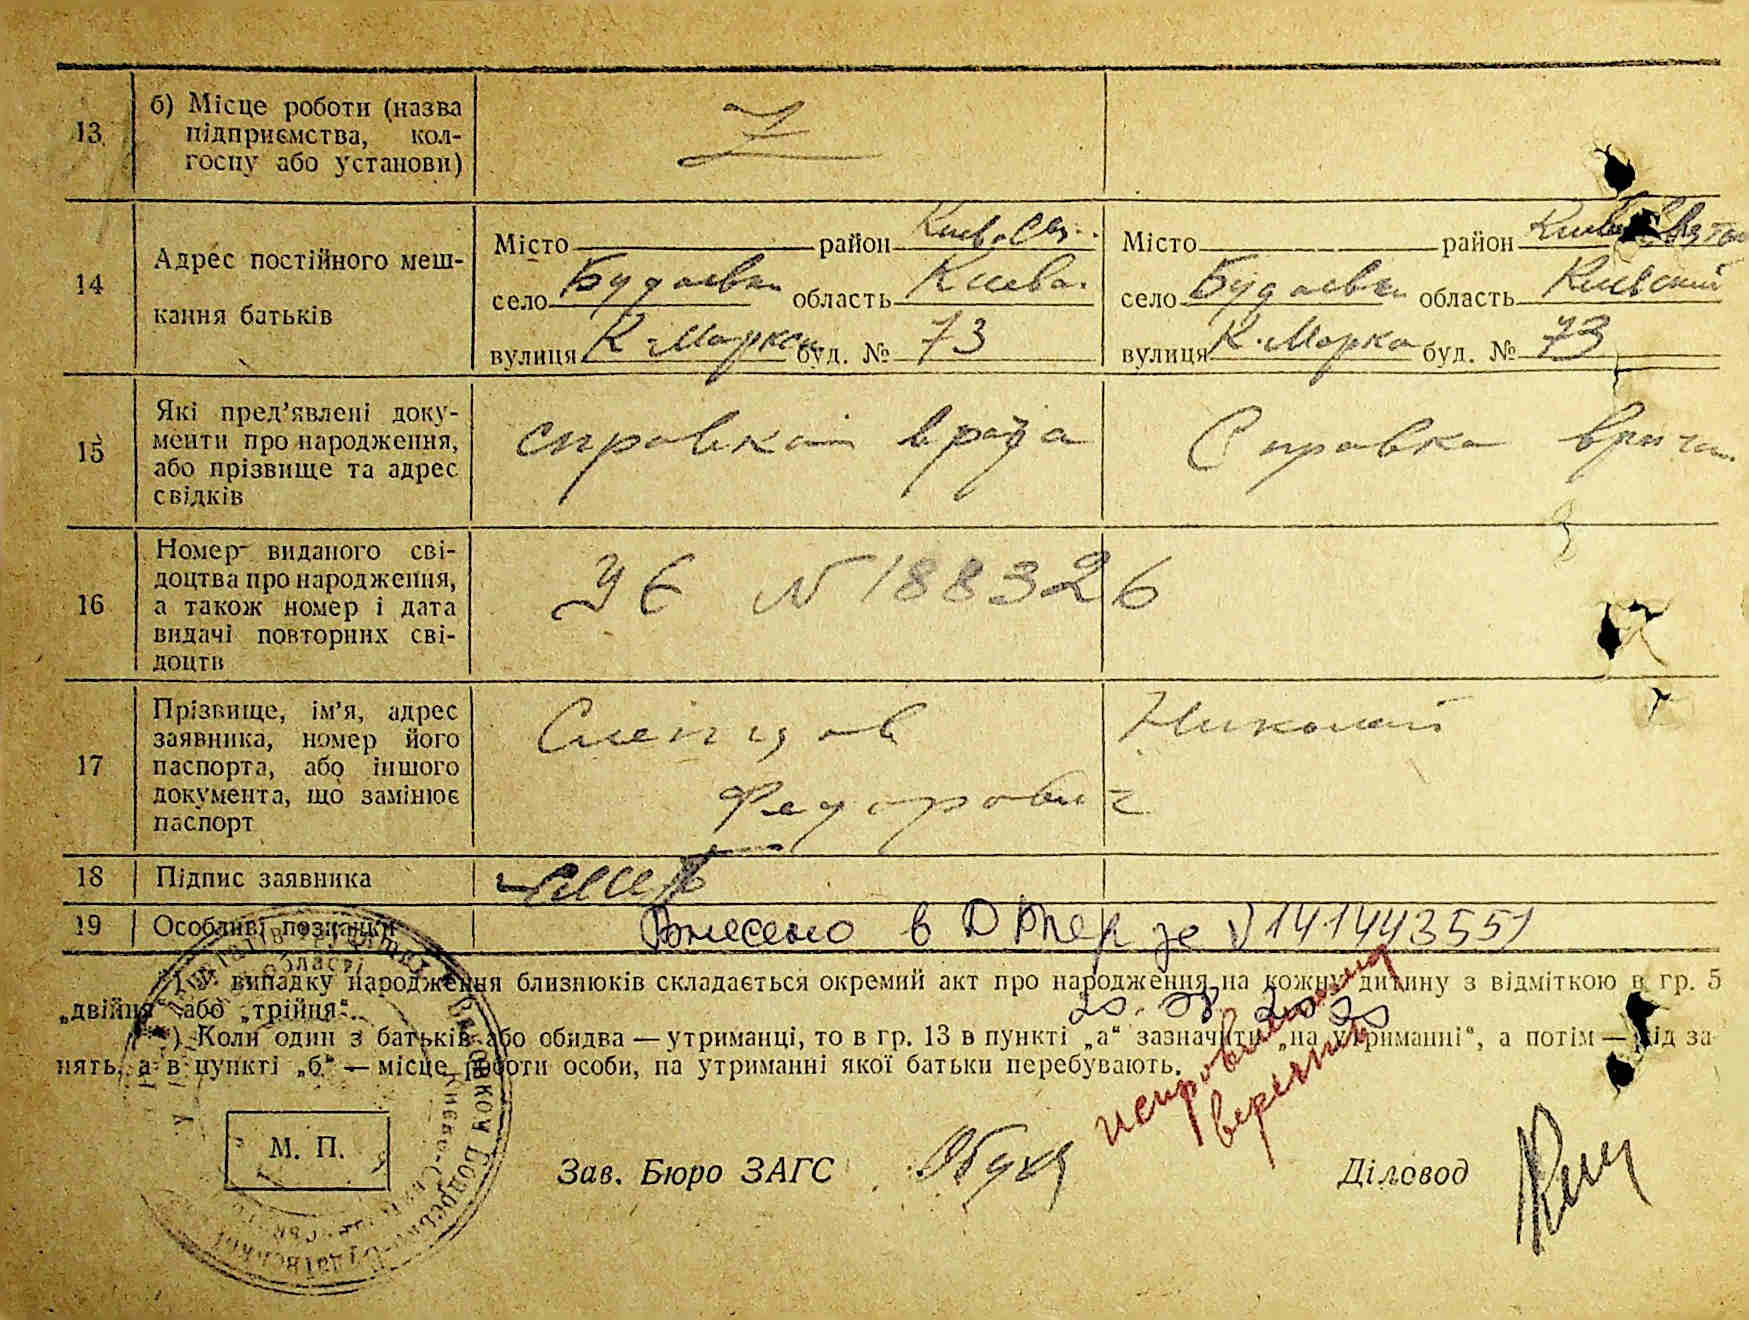 13
б) Місце роботи (назва
підприємства, кол-
госпу або установи)
14
Адрес постійного меш-
кання батьків
Місто район Киево Св.
село Будаевка область Киева.
вулиця К-Маркса буд. № 73
Місто район Киево Святош
село Будаевка область Киевский
вулиця К. Маркса буд. № 73
15
Які пред’явлені доку-
менти про народження,
або прізвище та адрес
свідків
справкой врача
Справка врача
16
Номер виданого сві-
доцтва про народження,
а також номер і дата
видачі повторних сві-
доцтв
УБ N 188326
17
Прізвище, ім’я, адрес
заявника, номер його
паспорта, або іншого
документа, що замінює
паспорт
Слепцов Николай
Федорович
18
Підпис заявника
19
Особливі познанки
Внесено в за N 1414435551
*) У випадку народження близнюків складається окремий акт про народження на кожну дитину з відміткою в гр. 5
„двійня“ або „трійця“.
**) Коли один з батьків або обидва — утриманці, то в гр. 13 в пункті „а“ зазначити „на утриманні“, а потім — від за-
нять, а в пункті „б“ — місце роботи особи, на утриманні якої батьки перебувають.
М. П.
Зав. Бюро ЗАГС
Діловод